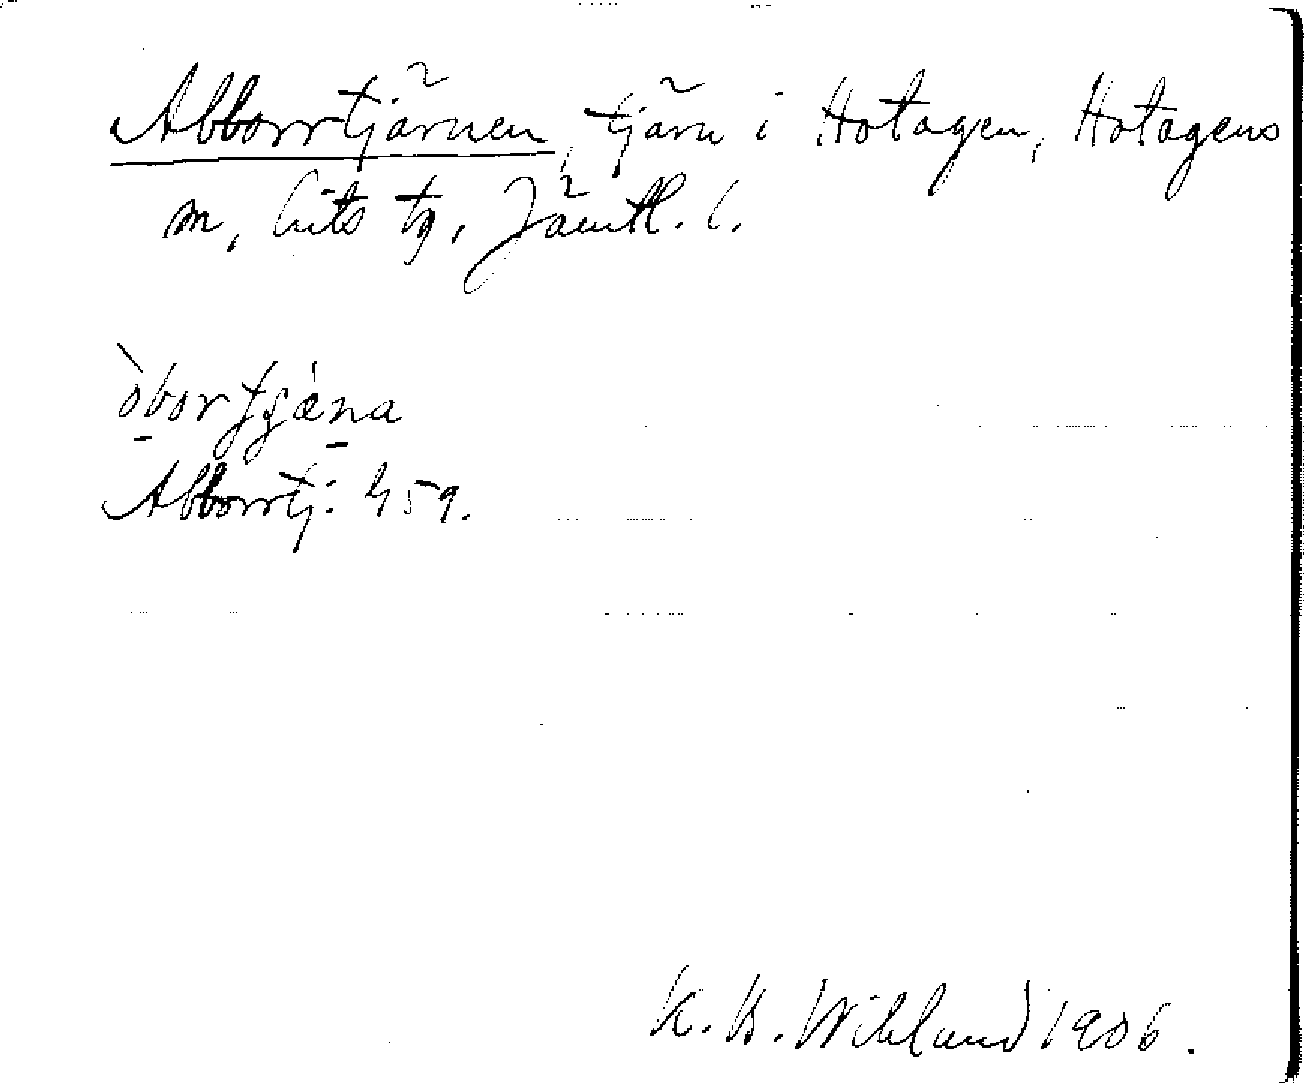 Abborrtjärnen, tjärn i Hotagen, Hotagens
m, Lits tg, Jämtl. l.
òbortjæ̀na
Abborrtj. 459.
K. B. Wiklund 1906.